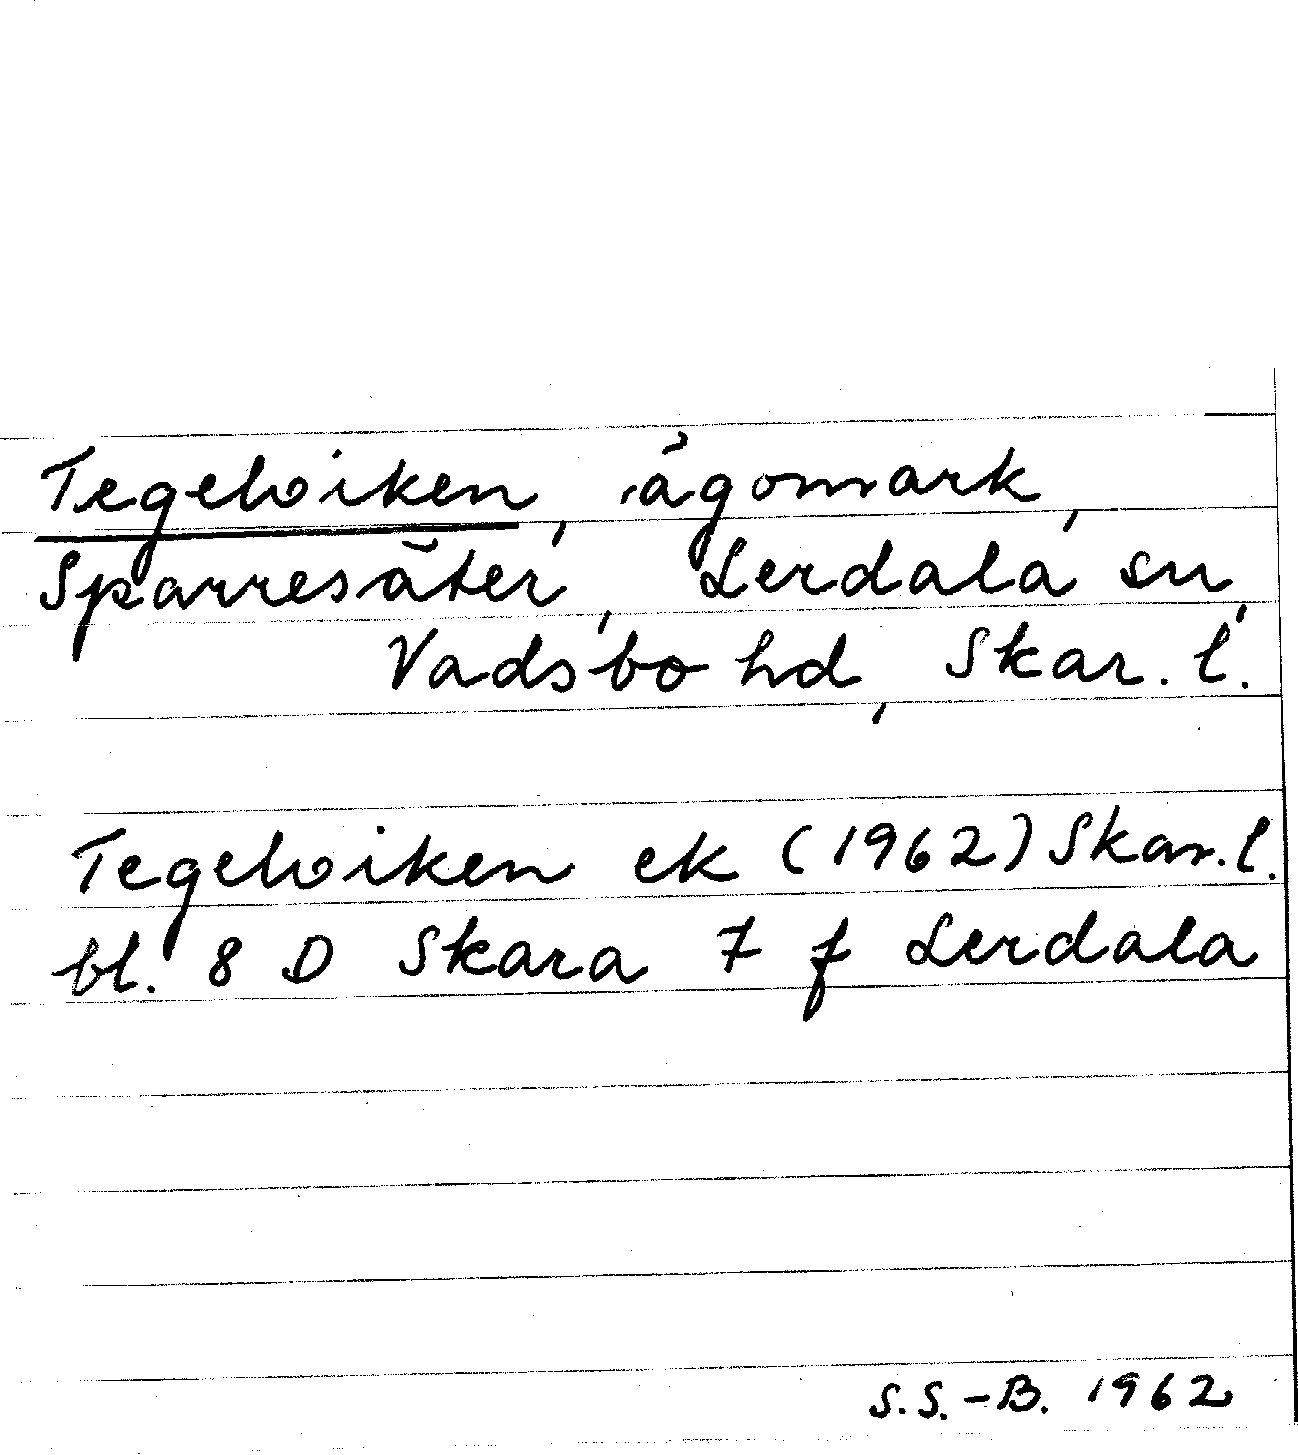 Tegelviken, ägomark,
Sparresäter, Lerdala sn,
Vadsbo hd, Skar. l.
Tegelviken ek (1962) Skar. l.
bl. 8 D Skara 7 f Lerdala
S.S.-B. 1962